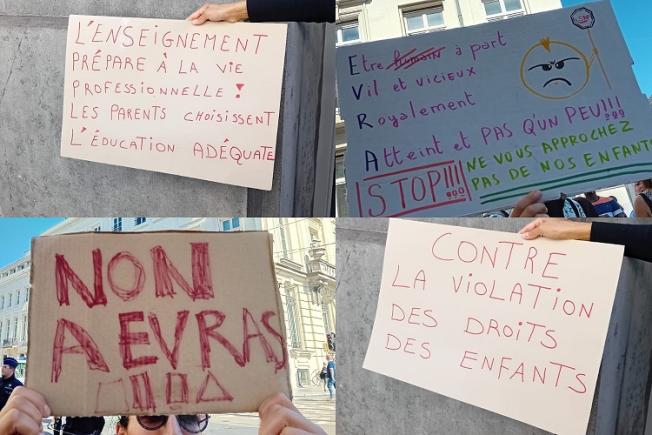 L'ENSEIGNEMENT
PRÉPARE À LA VIE
PROFESSIONNELLE !
LES PARENTS CHOISISSENT
L'ÉDUCATION ADÉQUATE
Etre humain à part
Vil et vicieux
Royalement
Atteint et PAS QU'UN PEU!!!
STOP!!!!
NE VOUS APPROCHEZ
PAS DE NOS ENFANTS
NON
A EVRAS
CONTRE
LA VIOLATION
DES DROITS
DES ENFANTS